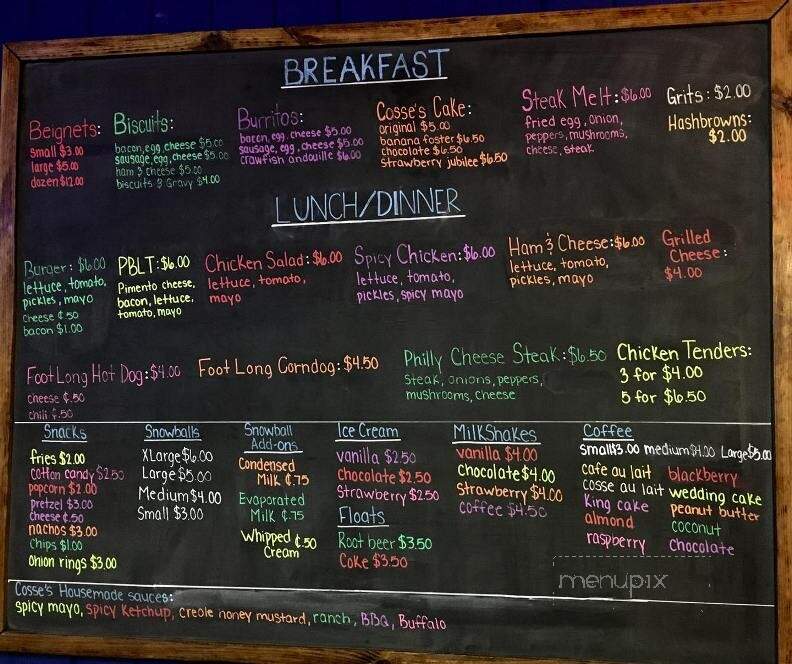 BREAKFAST
Beignets:
small $3.00
large $5.00
dozen $12.00
Biscuits:
bacon, egg, cheese $5.00
sausage, egg, cheese $5.00
ham & cheese $5.00
biscuits & Gravy $4.00
Burritos:
bacon, egg, cheese $5.00
sausage, egg, cheese $5.00
crawfish andouille $6.00
Cosse's Cake:
original $5.00
banana foster $6.50
chocolate $6.50
strawberry jubilee $6.50
Steak Melt: $6.00
fried egg, onion,
peppers, mushrooms,
cheese, steak
Grits: $2.00
Hashbrowns:
$2.00
LUNCH/DINNER
Burger: $6.00
lettuce, tomato,
pickles, mayo
cheese ¢.50
bacon $1.00
PBLT: $6.00
Pimento cheese,
bacon, lettuce,
tomato, mayo
Chicken Salad: $6.00
lettuce, tomato,
mayo
Spicy Chicken: $6.00
lettuce, tomato,
pickles, spicy mayo
Ham & Cheese: $6.00
lettuce, tomato,
pickles, mayo
Grilled
Cheese:
$4.00
Foot Long Hot Dog: $4.00
cheese ¢.50
chili ¢.50
Foot Long Corndog: $4.50
Philly Cheese Steak: $6.50
Steak, onions, peppers,
mushrooms, cheese
Chicken Tenders:
3 for $4.00
5 for $6.50
Snacks
fries $2.00
cotton candy $2.50
popcorn $2.00
pretzel $3.00
cheese ¢.50
nachos $3.00
chips $1.00
onion rings $3.00
Snowballs
XLarge $6.00
Large $5.00
Medium $4.00
Small $3.00
Snowball
Add-ons
Condensed
Milk ¢.75
Evaporated
Milk ¢.75
Whipped ¢.50
Cream
Ice Cream
vanilla $2.50
chocolate $2.50
Strawberry $2.50
Floats
Root beer $3.50
Coke $3.50
MilkShakes
vanilla $4.00
chocolate $4.00
Strawberry $4.00
coffee $4.50
Coffee
Small $3.00 medium $4.00 Large $5.00
cafe au lait
cosse au lait
King cake
almond
raspberry
blackberry
wedding cake
peanut butter
coconut
chocolate
Cosse's Housemade sauces:
spicy mayo, spicy Ketchup, creole honey mustard, ranch, BBQ, Buffalo
menupix